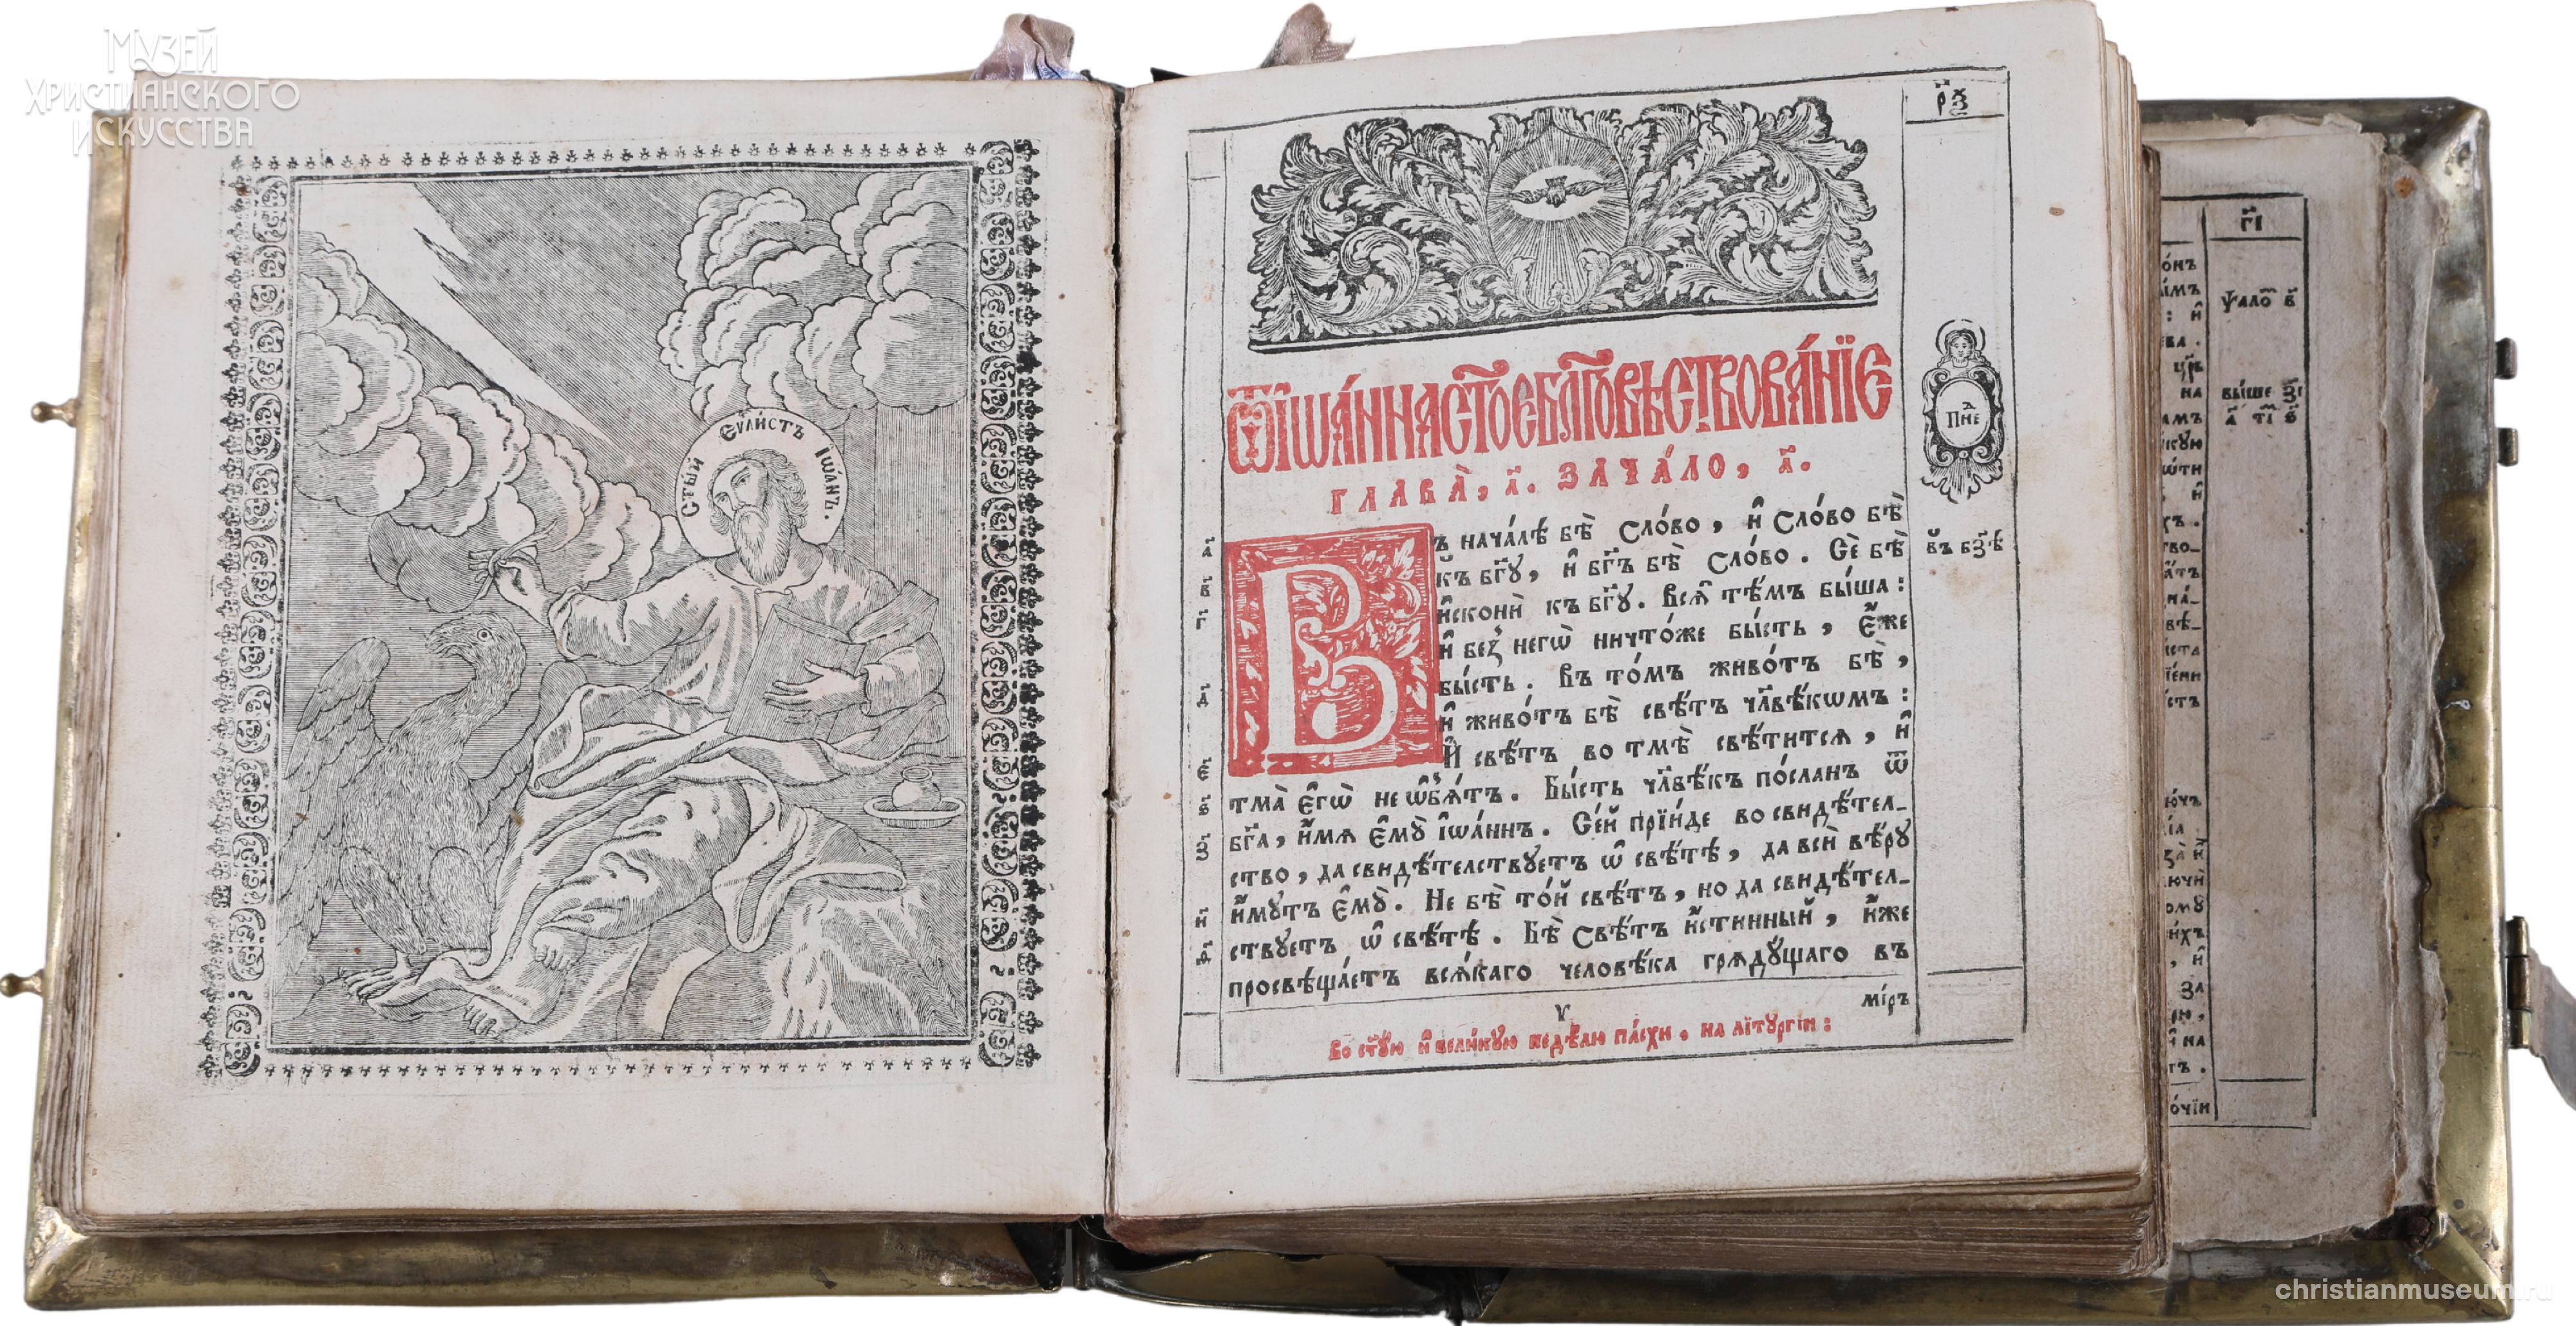 Музей
Христианского
искусства
Ст҃ы́й Єѵⷢ҇лі́стъ Іѡа́ннъ.
Р҃Ѯ҃З
Ѿ Іѡа́нна ст҃о́е бл҃гові́ствова́нїе
ГЛАВА̀, а҃. ЗАЧА́ЛО, а҃.
Въ нача́лѣ бѣ̀ Сло́во, и҆ Сло́во бѣ̀
къ бг҃ꙋ, и҆ бг҃ъ бѣ̀ Сло́во. Се́ бѣ̀
и҆сконѝ къ бг҃ꙋ. Всѧ̑ тѣ́мъ бы́ша:
и҆ без̾ негѡ̀ ничто́же бы́сть, є҆́же
бы́сть. Въ то́мъ живо́тъ бѣ̀,
и҆ живо́тъ бѣ̀ свѣ́тъ чл҃вѣ́кѡмъ:
И҆ свѣ́тъ во тмѣ̀ свѣ́титсѧ, и҆
тма̀ є҆гѡ̀ не ѡ҆б̾ѧ́тъ. Бы́сть чл҃вѣ́къ по́сланъ ѿ
бг҃а, и҆́мѧ є҆мꙋ̀ і҆ѡа́ннъ. Се́й прїи́де во свидѣ́тел_
ство, да свидѣ́телствꙋетъ ѡ҆ свѣ́тѣ, да всѝ вѣ́рꙋ
и҆́мꙋтъ є҆мꙋ̀. Не бѣ̀ то́й свѣ́тъ, но да свидѣ́тел_
ствꙋетъ ѡ҆ свѣ́тѣ. Бѣ̀ Свѣ́тъ и҆́стинный, и҆́же
просвѣща́етъ всѧ́каго человѣ́ка грѧдꙋ́щаго въ
мі́ръ
Во ст҃ꙋ́ю и҆ вели́кꙋю недѣ́лю па́схи, на лїтꙋргі́и:
а҃
в҃
г҃
д҃
є҃
ѕ҃
з҃
и҃
ѳ҃
Пне
в҃ъ бз҃ѣ
г҃і
ѱало в҃
вы́ше з҃і
christianmuseum.ru